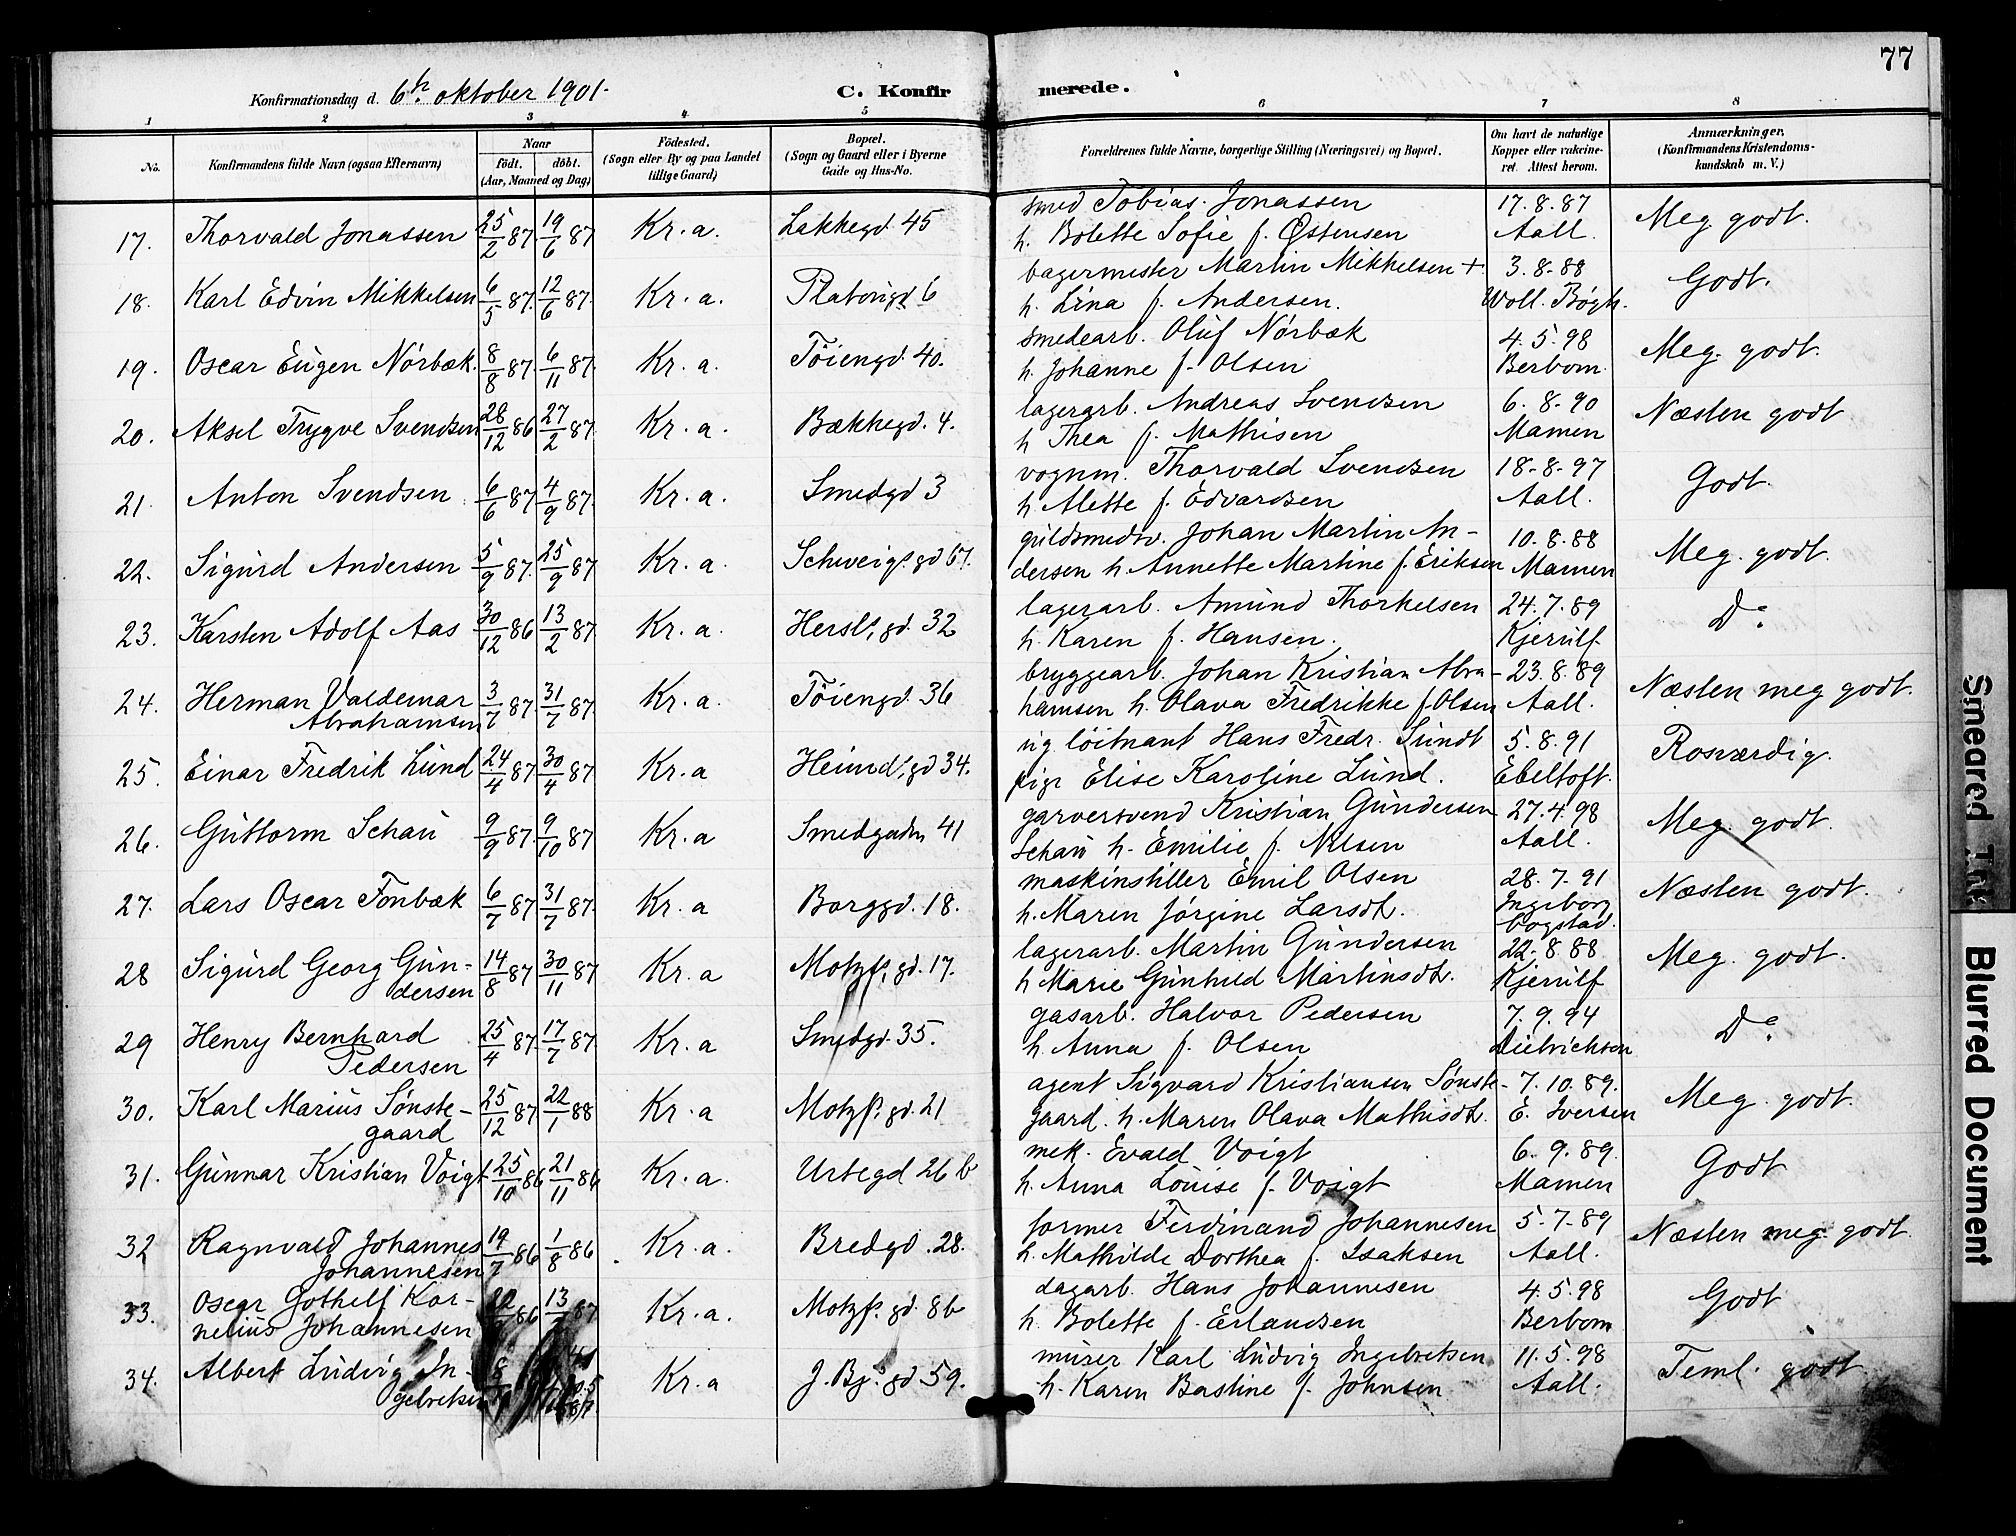 77
Konfirmationsdag d. 6te oktober 1901.
C. Konfirmerede.
1 2 3 4 5 6 7 8
No.
Konfirmandens fulde Navn (ogsaa Efternavn)
Naar
født. døbt.
(Aar, Maaned og Dag)
Fødested.
(Sogn eller By og paa Landet
tillige Gaard)
Bopæl.
(Sogn og Gaard eller i Byerne
Gade og Hus-No.
Forældrenes fulde Navne, borgerlige Stilling (Næringsvei) og Bopæl.
Om havt de naturlige
Kopper eller vakcine-
ret. Attest herom.
Anmærkninger.
(Konfirmandens Kristendoms-
kundskab m. V.)
17. Thorvald Jonassen 25/2 87 19/6 87 Kr.a. Lakkegd 45 smed Tobias Jonassen 17.8.87 Meg godt.
h. Bolette Sofie f. Østensen Aall.
18. Karl Edvin Mikkelsen 6/5 87. 12/6 87. Kr.a. Platougd 6 bagermester Martin Mikkelsen + 3.8.88 Godt.
h. Lina f. Andersen. Woll. Bøgh.
19. Oscar Eugen Nórbæk. 8/8 87. 6/11 87. Kr.a. Töiengd. 40. smedearb. Oluf Nórbæk 4.5.98 Meg. godt.
h. Johanne f. Olsen Berbom.
20. Aksel Trygve Svendsen 28/12 86 27/2 87. Kr.a. Bækkegd. 4. lagerarb. Andreas Svendsen 6.8.90 Næsten godt
h Thea f. Mathisen Mamen
21. Anton Svendsen 6/6 87 4/9 87. Kr.a. Smedgd 3 vognm. Thorvald Svendsen 18-8-97 Godt.
h. Alette f. Edvardsen Aall.
22. Sigurd Andersen 5/9 87. 25/9 87 Kr.a. Schweigs gd 67. guldsmedsv. Johan Martin An- 10.8.88 Meg. godt.
dersen h Annette Martine f. Eriksen Mamen
23. Karsten Adolf Aas 30/12 86 13/2 87. Kr.a. Hersls, gd. 32 lagerarb. Amund Thorkelsen 24.7.89 Do.
h. Karen f. Hansen. Kjerulf
24. Herman Valdemar 3/7 87. 31/7 87. Kr.a. Töiengd. 36 bryggearb. Johan Kristian Abra- 23.8.89 Næsten meg godt.
Abrahamsen hamsen h. Olava Fredrikke f. Olsen Aall.
25. Einar Fredrik Lund 24/4 87 30/4 87 Kr.a Heimd, gd 34. ug löitnant Hans Fredr. Sundt 5.8.91 Rosværdig.
pige Elise Karoline Lund. Ebeltoft.
26. Guttorm Schau 9/9 87. 9/10 87 Kr.a Smedgaden 41 garversvend Kristian Gundersen 27.4.98 Meg. godt.
Schau h. Emilie f. Nilsen Aall.
27. Lars Oscar Fonbæk 6/7 87 31/7 87. Kr.a Borggd. 18. maskinstiller Emil Olsen 28.7.91 Næsten godt.
h. Maren Jórgine Larsdt. Ingeborg
Bogstad.
28 Sigurd Georg Gun- 14/8 87 30/11 87 Kr.a Motzfs, gd. 17. lagerarb. Martin Gundersen 22.8.88 Meg. godt.
dersen h Marie Gunhild Martinsdt. Kjerulf
29 Henry Bernhard 25/4 87. 17/7 87. Kr.a Smedgd. 35. gasarb. Halvor Pedersen 7.9.94 Do.
Pedersen h. Anna f. Olsen Dietrichsen
30. Karl Marius Sønste- 25/12 87 22/1 88 Kr.a Motzfs. gd. 21 agent Sigvard Kristiansen Sønste- 7.10.89. Meg. godt.
gaard gaard. h. Maren Olava Mathisdt. E. Iversen
31. Gunnar Kristian Voigt 25/10 86 21/11 86 Kr.a. Urtegd 26 b mek. Evald Voigt 6.9.89. Godt
h. Anna Louise f. Voigt Mamen
32 Ragnvald Johannes 19/7 86 1/8 86 Kr.a. Bredgd. 28. former Ferdinand Johannesen 5.7.89 Næsten meg. godt.
Johannesen h. Mathilde Dorthea f. Isaksen Aall.
33. Oscar Gothelf Kor- 86 13 87 Kr.a. Motzfs. gd. 8b dagarb. Hans Johannesen 4.5.98 Godt
nelius Johannesen h. Bolette f. Erlandsen Berbom
34. Albert Ludvig In- 8 Kr.a J. Bjs. gd 59. murer Karl Ludvig Ingebretsen 11.5.98 Teml. godt
gebretsen h. Karen Bastine f. Johnsen Aall.
Smeared Ink
Blurred Document